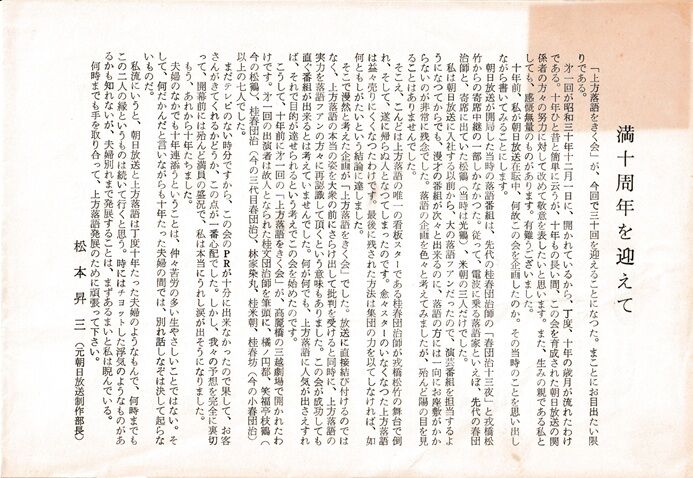 満十周年を迎えて
「上方落語をきく会」が、今回で三十回を迎えることになつた。まことにお目出たい限
りである。
才一回が昭和三十年十二月一日に、開かれているから、丁度、十年の歳月が流れたわけ
である。十年ひと昔と簡単に云うが、十年もの長い間、この会を育成された朝日放送の関
係者の方々の努力に対して改めて敬意を表したいと思います。また、生みの親である私と
しても、感慨無量のものがあります。有難うございました。
十年前、私が朝日放送在社中、何故この会を企画したのか。その当時のことを思い出し
ながら書いてみることにします。
朝日放送が開局した当時の落語番組は、先代の桂春団治師の「春団治十三夜」と戎橋松
竹からの寄席中継の一部しかなかつた。従つて、電波に乗る落語家といえば、先代の春団
治師と、寄席に出ていた松鶴(当時は光鶴)、米朝の三人だけでした。
私は朝日放送に入社する以前から、大の落語ファンだつたので、演芸番組を担当するよ
うになつてからでも、漫才の番組が次々と出来るのに、落語の方には一向にお座敷がかか
らないのが非常に残念でした。落語の企画を色々と考えてみましたが、殆んど陽の目を見
ることはありませんでした。
そこえ、こんどは上方落語の唯一の看板スターである桂春団治師が戎橋松竹の舞台で倒
れ、そして、遂に帰らぬ人となつてしまつたのです。愈々スターのいなくなつた上方落語
は益々売りにくくなつたわけです。最後に残された方法は集団の力を以てしなければ、如
何ともしがたいという結論に達しました。
そこで漠然と考えた企画が「上方落語をきく会」でした。放送に直接結び付けるのでは
なく、上方落語の本当の姿を大衆の前にさらけ出して批判を受けると同時に、上方落語の
実力を落語ファンの方々に再認識して頂くという意味もありました。この会が成功しても
直ぐ番組が出来るとは考えていませんでした。何が何でも、上方落語に人気が出さえすれ
ば、それで目的が達せられるという考えでこの会を始めたのです。
こうして、十年前に才一回の「上方落語をきく会」が、高麗橋の三越劇場で開かれたわ
けです。才一回の出演者は故人となられた桂文団治師を筆頭に、橘ノ円都、笑福亭枝鶴(
今の松鶴)、桂福団治(今の三代目春団治)、林家染丸、桂米朝、桂春坊(今の小春団治)
以上の七人でした。
まだテレビのない時分ですから、この会のPRが十分に出来なかつたので果して、お客
さんがきてくれるかどうか、この点が一番心配でした。しかし、我々の予想を完全に裏切
つて、開幕前には殆んど満員の盛況で、私は本当にうれし涙が出そうになりました。
もう、あれから十年たちました。
夫婦のなかでも十年連添うということは、仲々苦労の多い生やさしいことではない。そ
して、何だかんだと言いながらも十年たつた夫婦の間では、別れ話しなぞは決して起らな
いものだ。
私流にいうと、朝日放送と上方落語は丁度十年たつた夫婦のようなもんで、何時までも
この二人の縁というものは続いて行くと思う。時にはチョットした浮気のようなものがあ
るかも知れないが、夫婦別れまで発展することは、まずあるまいと私は睨んでいる。
何時までも手を取り合って、上方落語発展のために頑張って下さい。
松本昇三(元朝日放送制作部長)